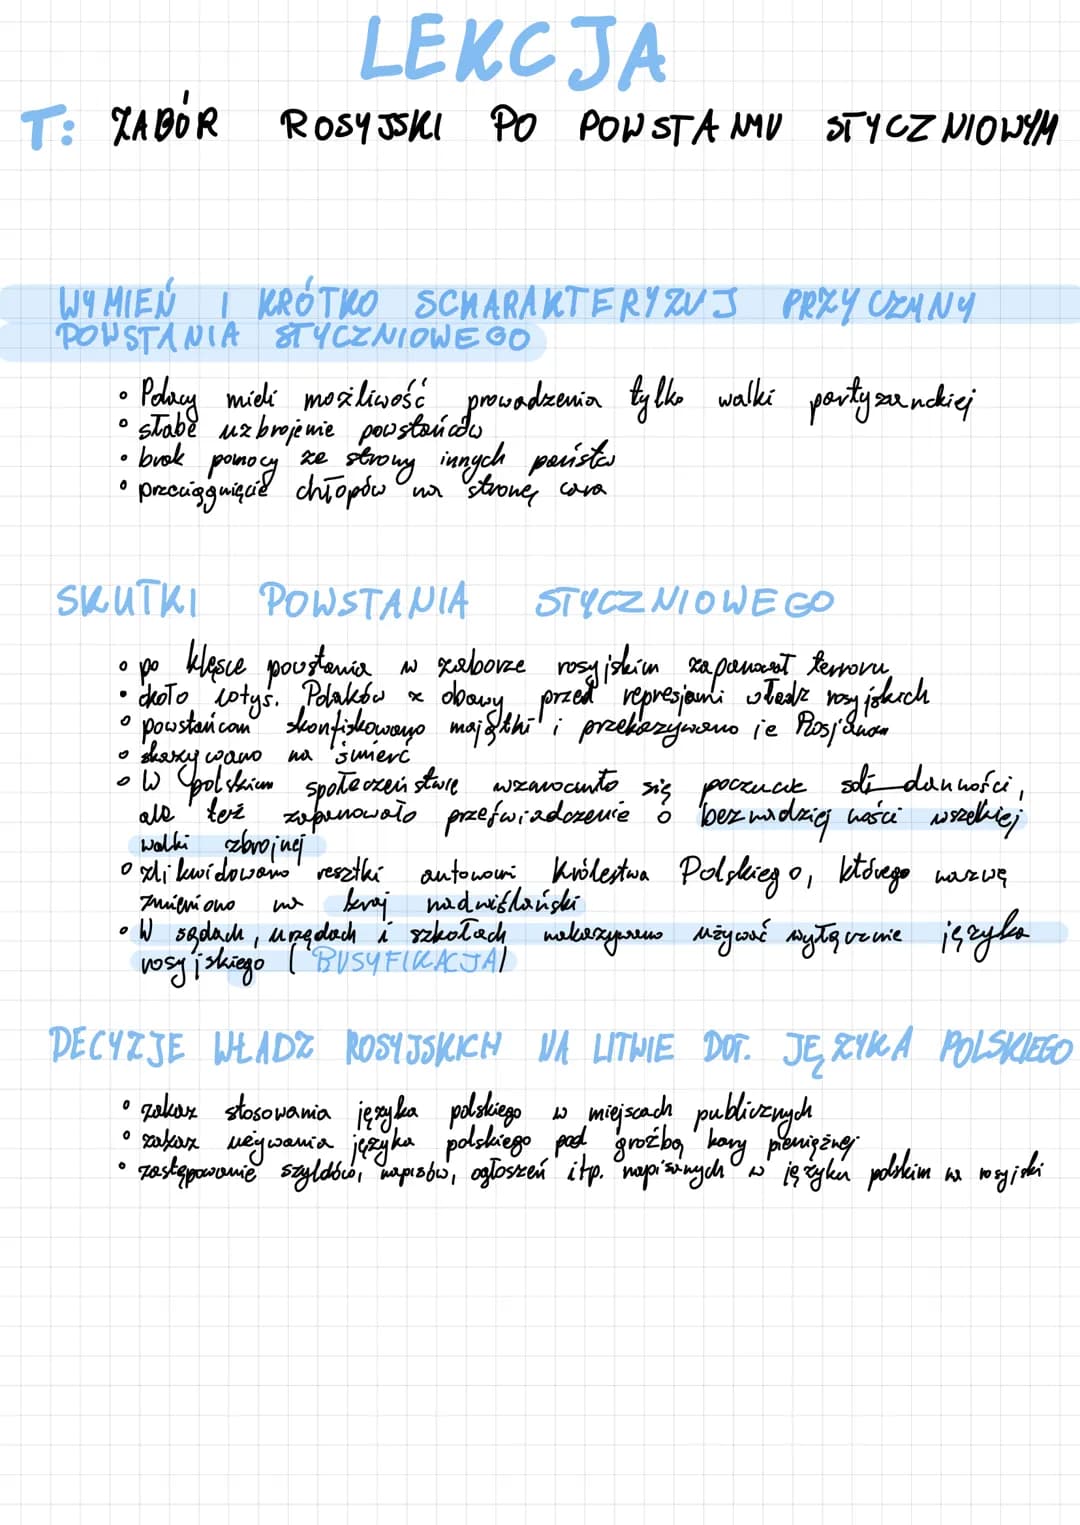 LEKCJA
T: ZABÓR ROSYJSKI PO POWSTANIU STYCZNIOWYM
WYMIEŃ I KRÓTKO SCHARAKTERYZUJ PRZYCZYNY
POWSTANIA STYCZNIOWEGO
• Polacy mieli możliwość prowadzenia tylko walki partyzanckiej
• słabe uzbrojenie powstańców
• brak pomocy ze strony innych państw
• przeciągnięcie chłopów na stronę cara
SKUTKI POWSTANIA STYCZNIOWEGO
• po klęsce powstania w zaborze rosyjskim zapanował terroru
• około tyś. Polaków z obawy przed represjami władz rosyjskich
• powstańcom skonfiskowano majątki i przekazywano je Rosjanom
• skazywano na śmierć
• W polskim społeczeństwie wzmocniło się poczucie solidarności,
ale też zapanowało przeświadczenie o beznadziejności wszelkiej
walki zbrojnej
• zlikwidowano resztki autonomi Królestwa Polskiego, którego nazwę
zmieniono na kraj nadwiślański
• W sądach, urzędach i szkołach nakazywano używać wyłącznie języka
rosyjskiego (RUSYFIKACJA)
DECYZJE WŁADZ ROSYJSKICH NA LITWIE DOT. JĘZYKA POLSKIEGO
• zakaz stosowania języka polskiego w miejscach publicznych
• zakaz używania języka polskiego pod groźbą kary pieniężnej
• zastępowanie szyldów, napisów, ogłoszeń itp. napisanych w języku polskim na rosyjski